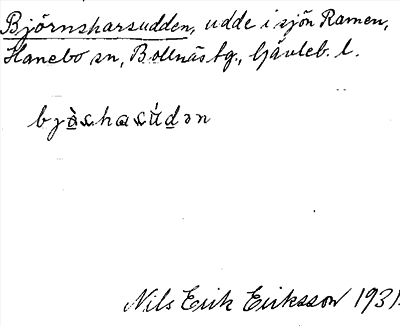 Björnsharsudden, udde i sjön Ramen,
Hanebo sn, Bollnäs tg., Gävleb. l.
Nils Erik Eriksson 1931.